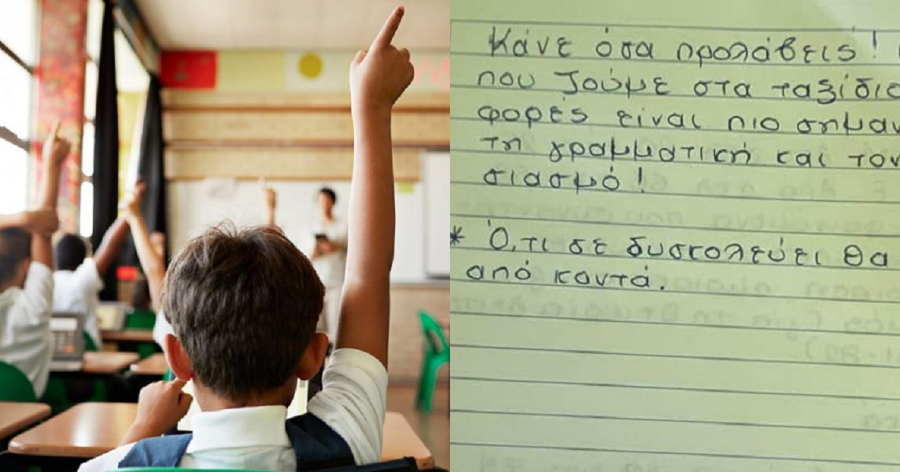 Κάνε όσα προλάβεις!
που ζούμε στα ταξίδια
φορές είναι πιο σημαν
τη γραμματική και τον
σιασμό!
* Ό,τι σε δυσκολεύει θα
από κοντά.